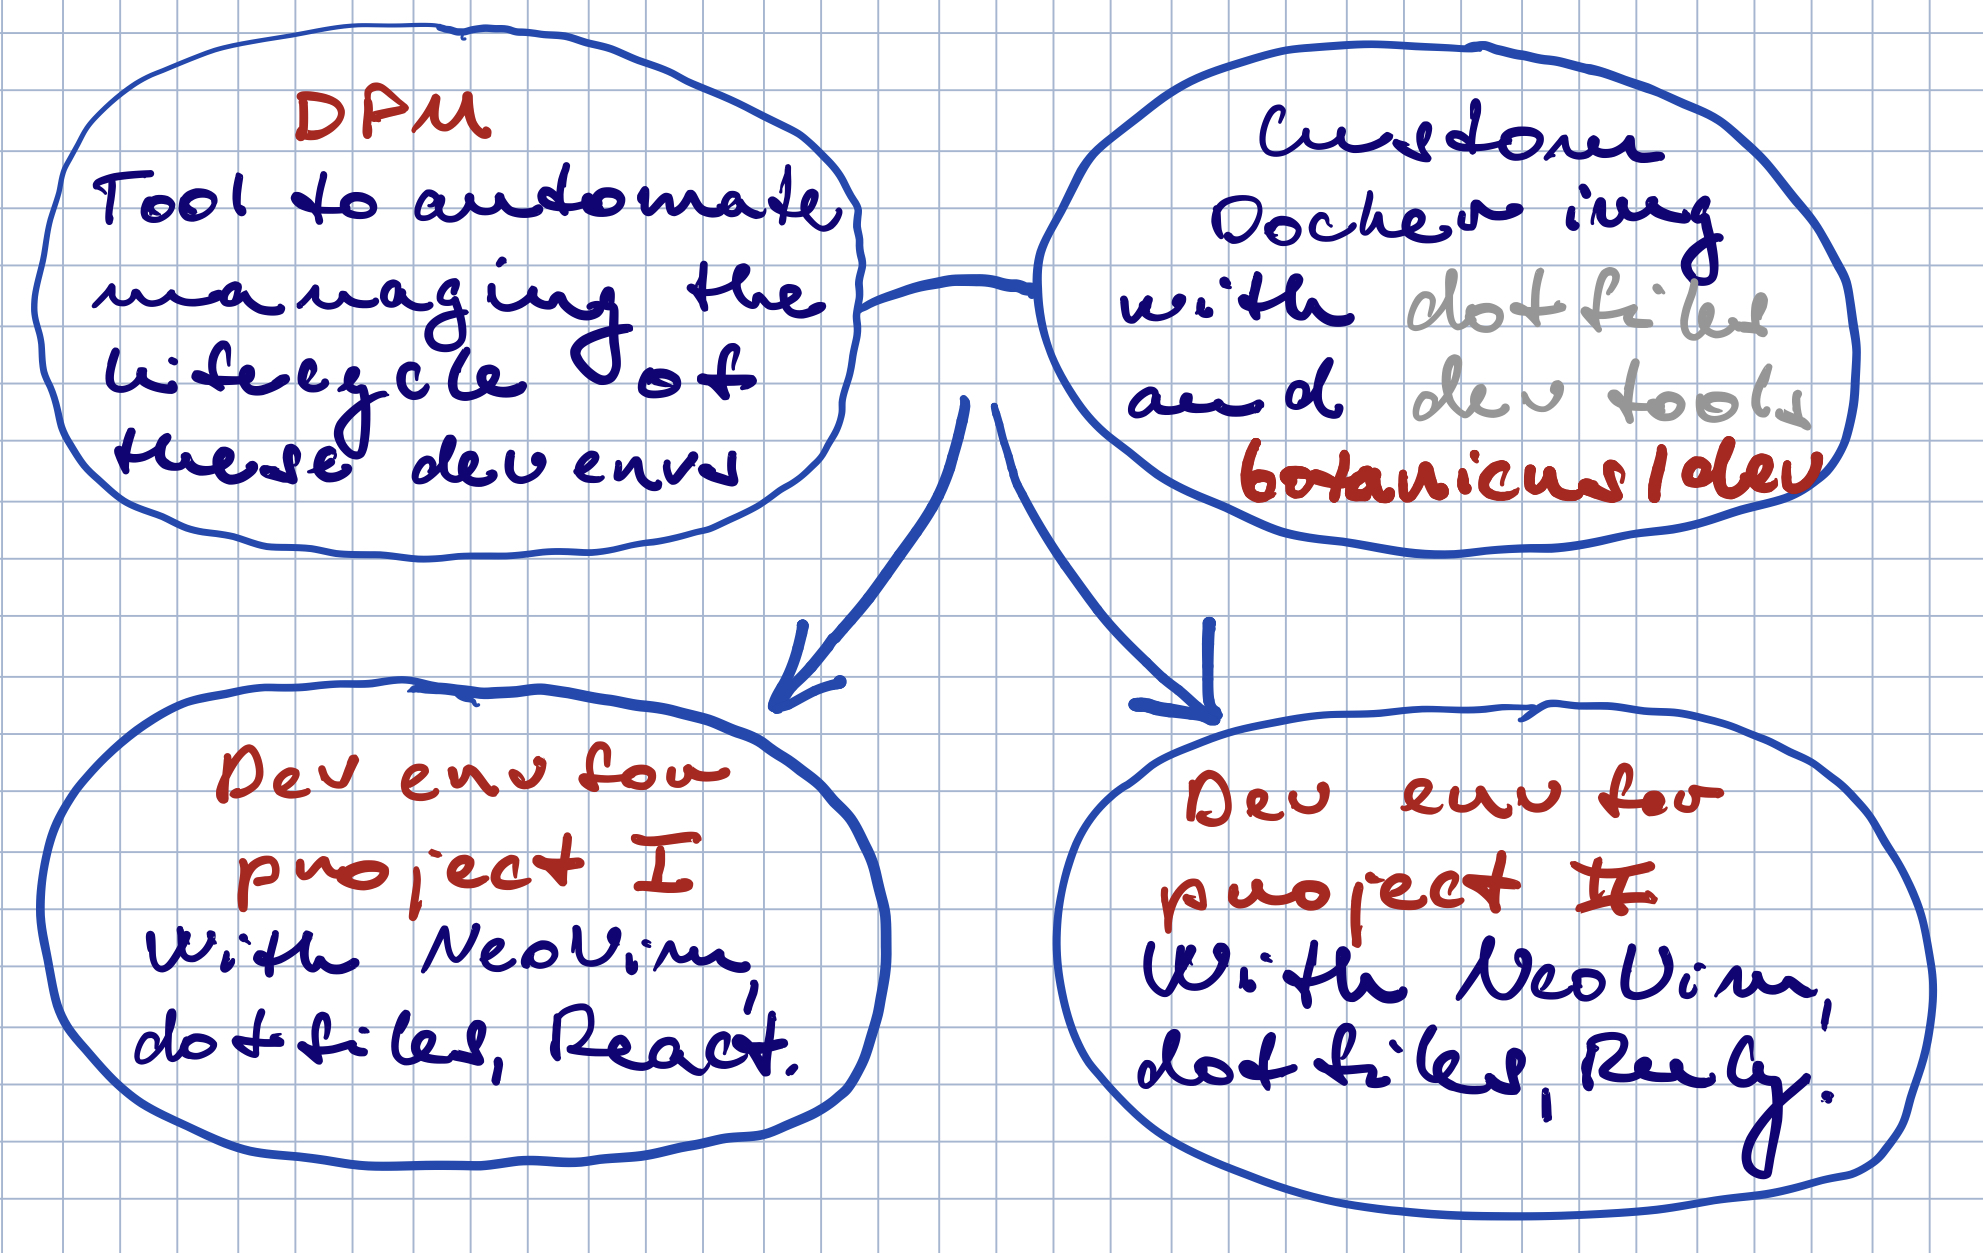 DPM
Tool to automate
managing the
lifecycle of
these dev envs
Custom
Docker img
with dotfiles
and dev tools
botanicus/dev
Dev env for
project I
With NeoVim,
dotfiles, React.
Dev env for
project II
With NeoVim,
dotfiles, Ruby.